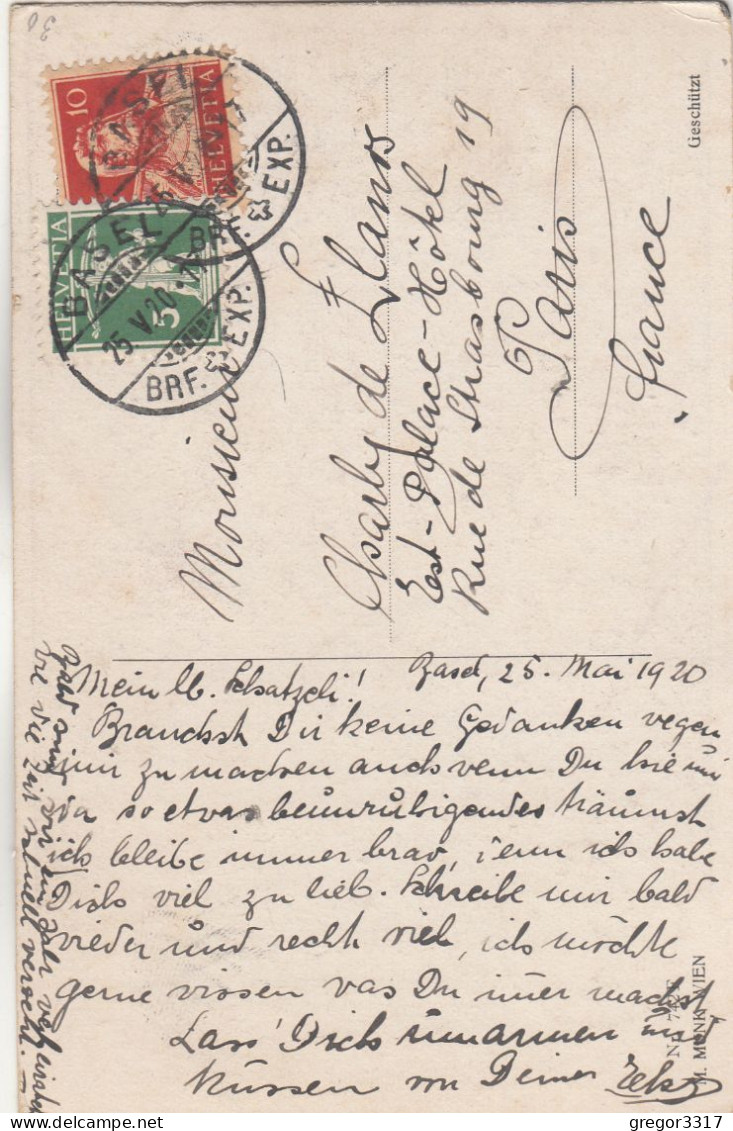 30
10
HELVETIA
BASEL
BRF. EXP.
HELVETIA
5
BASEL
25 V 20
BRF. EXP.
Geschützt
Monsieur
Charly de
Est-Palace-Hôtel
Rue de Strasbourg 19
Paris
France
Basel, 25. Mai 1920
Mein lb. Schatzeli!
Brauchsch Dir keine Gedanken wegen
mir zu machen auch wenn Du hie und
da so etwas beunruhigendes träumst
ich bleibe immer brav, denn ich habe
Dich viel zu lieb. Schreibe mir bald
wieder und recht viel, ich möchte
gerne wissen was Du immer machst
Lass Dich umarmen und
küssen von Deiner
Bald sind wir ein Jahr
wie die Zeit schnell vergeht.
M. MUNK WIEN